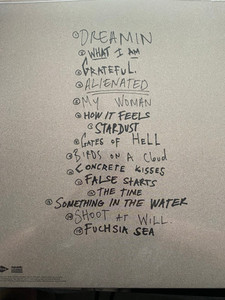 ① DREAMIN
② WHAT I AM
③ GRATEFUL
④ ALIENATED
⑤ MY WOMAN
⑥ HOW IT FEELS
⑦ STARDUST
⑧ GATES OF HELL
⑨ BIRDS ON A Cloud
⑩ CONCRETE KISSES
⑪ FALSE STARTS
⑫ THE TINE
⑬ SOMETHING IN THE WATER
⑭ SHOOT AT WILL
⑮ FUCHSIA SEA